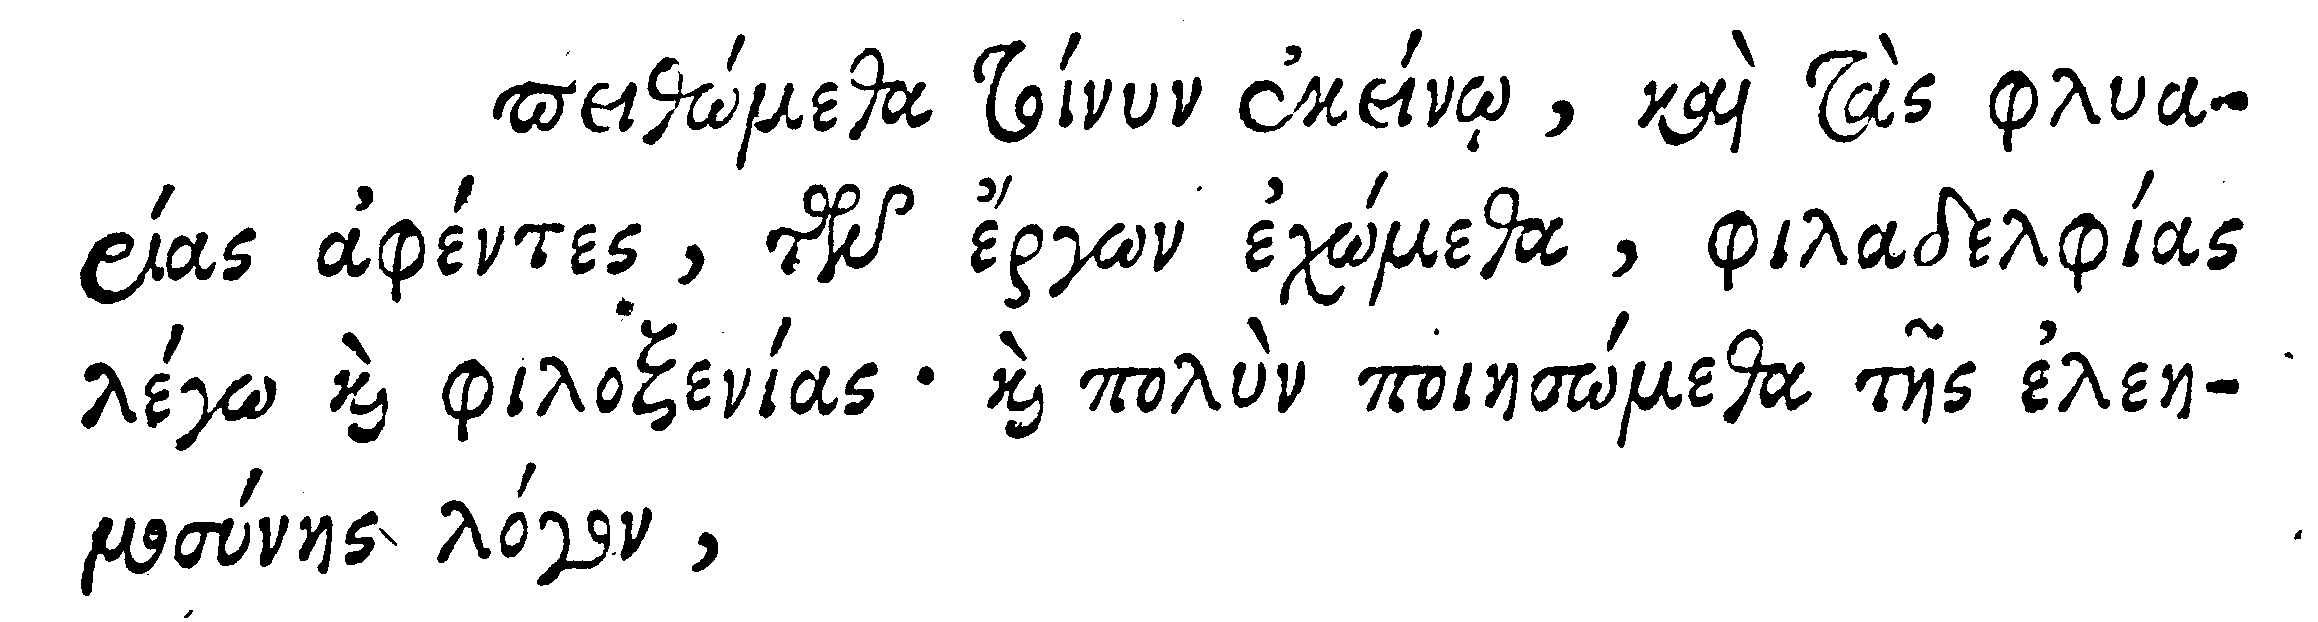 πειθώμεθα τοίνυν ἐκείνῳ, καὶ τὰς φλυα-
ρίας ἀφέντες, τῶν ἔργων ἐχώμεθα, φιλαδελφίας
λέγω καὶ φιλοξενίας· καὶ πολὺν ποιησώμεθα τῆς ἐλεη-
μοσύνης λόγον,